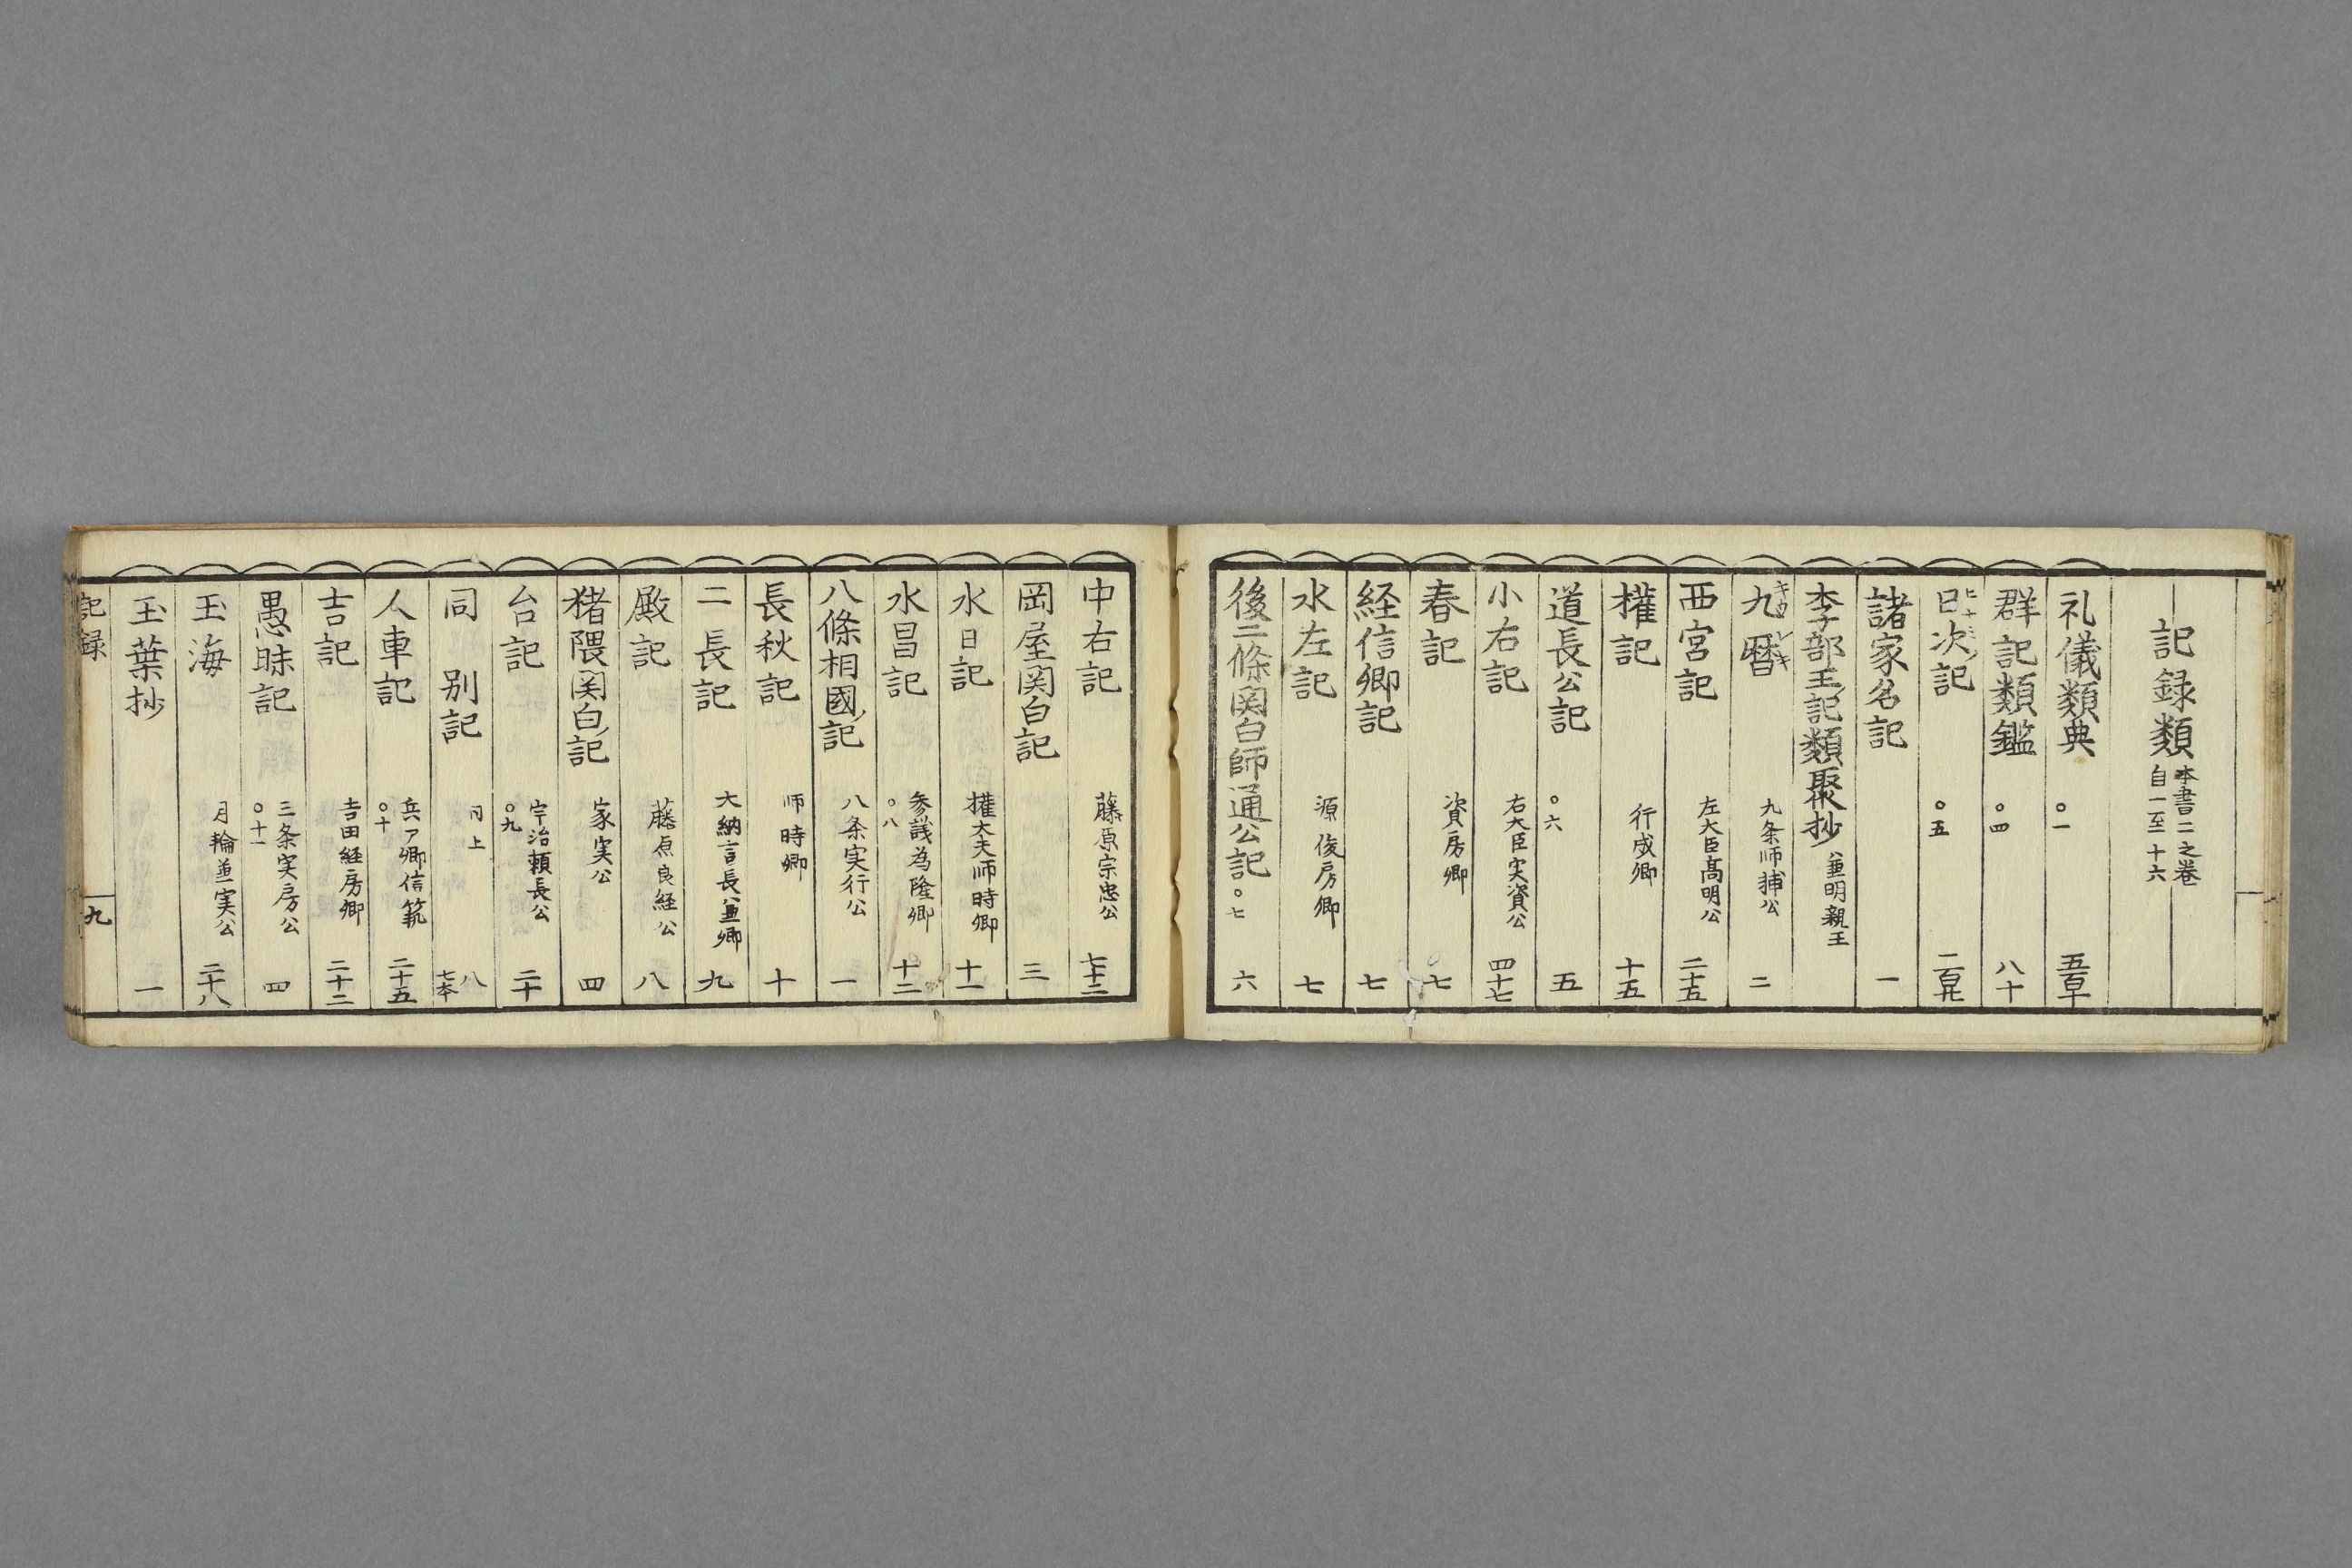 記録類 本書二之巻
自一至十六
礼儀類典 〇一 五百十
群記類鑑 〇四 八十
日次記 〇五
諸家名記 一
李部王記類聚抄 兼明親王
九暦 キウレキ 九条師捕公 二
西宮記 左大臣高明公 二十五
權記 行成卿 十五
道長公記 〇六 五
小右記 右大臣実資公 四十七
春記 資房卿 七
経信卿記 七
水左記 源俊房卿 七
後二條関白師通公記 〇七 六
中右記 藤原宗忠公 七十三
岡屋関白記 三
水日記 權大夫师時卿 十一
水昌記 参議為隆卿 〇八 十二
八條相國記 八条実行公 一
長秋記 师時卿 十
二長記 大納言長兼卿 九
殿記 藤原良経公 八
猪隈関白記 家実公 四
台記 宇治頼長公 〇九 二十
同別記 同上 八
人車記 兵ア卿信範 〇十 二十五
吉記 吉田経房卿 二十二
愚昧記 三条実房公 〇十一 四
玉海 月輪兼実公 二十八
玉葉抄 一
記録 九